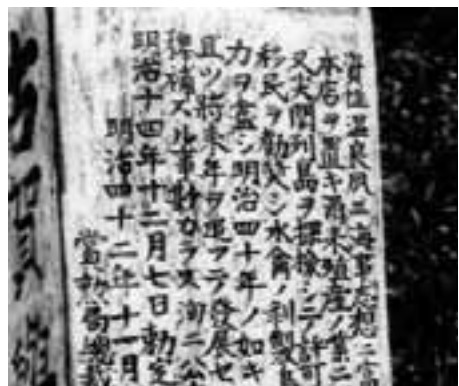 資性温良夙ニ海事思想ニ富
本店ヲ置キ爾来殖産ノ業ニ
又尖閣列島ヲ探検シテ許可
移民ヲ勧誘シ水禽ノ剥製
力ヲ盡シ明治四十年ノ如キ
且ツ将来年ヲ逐フテ發展セ
裨補スル事尠カラス洵ニ公
明治十四年十二月七日勅定
明治四十二年十一月
賞勲局總裁
古賀